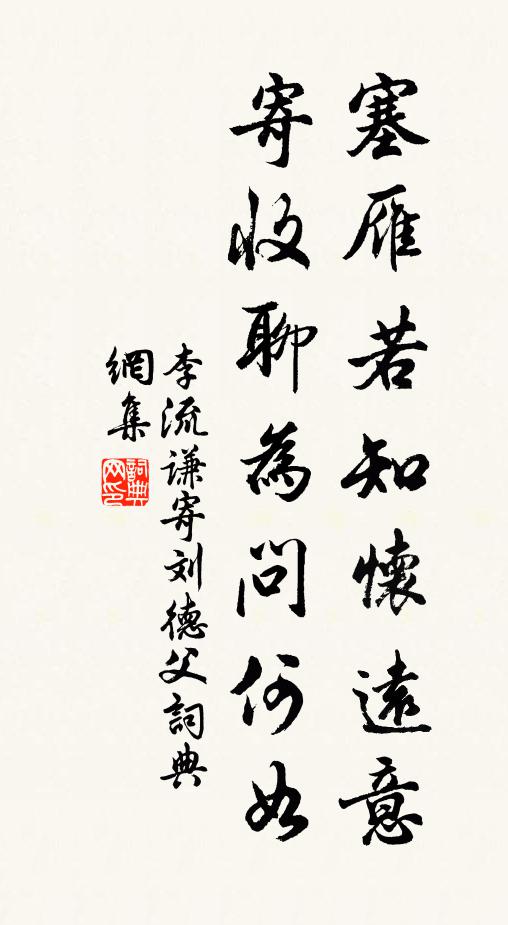 塞雁若知懷遠意
寄收聊為問何如
李流谦寄刘德父詞典
網集
詞典網印